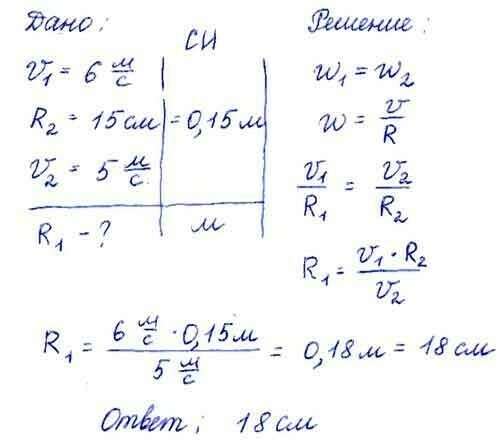 Дано:
СИ
v₁ = 6 м/с
R₂ = 15 см = 0,15 м
v₂ = 5 м/с.
R₁ - ?
м
Решение:
w₁ = w₂
w = v/R
v₁/R₁ = v₂/R₂
R₁ = v₁·R₂/v₂
R₁ = 6 м/с · 0,15 м / 5 м/с = 0,18 м = 18 см
Ответ: 18 см